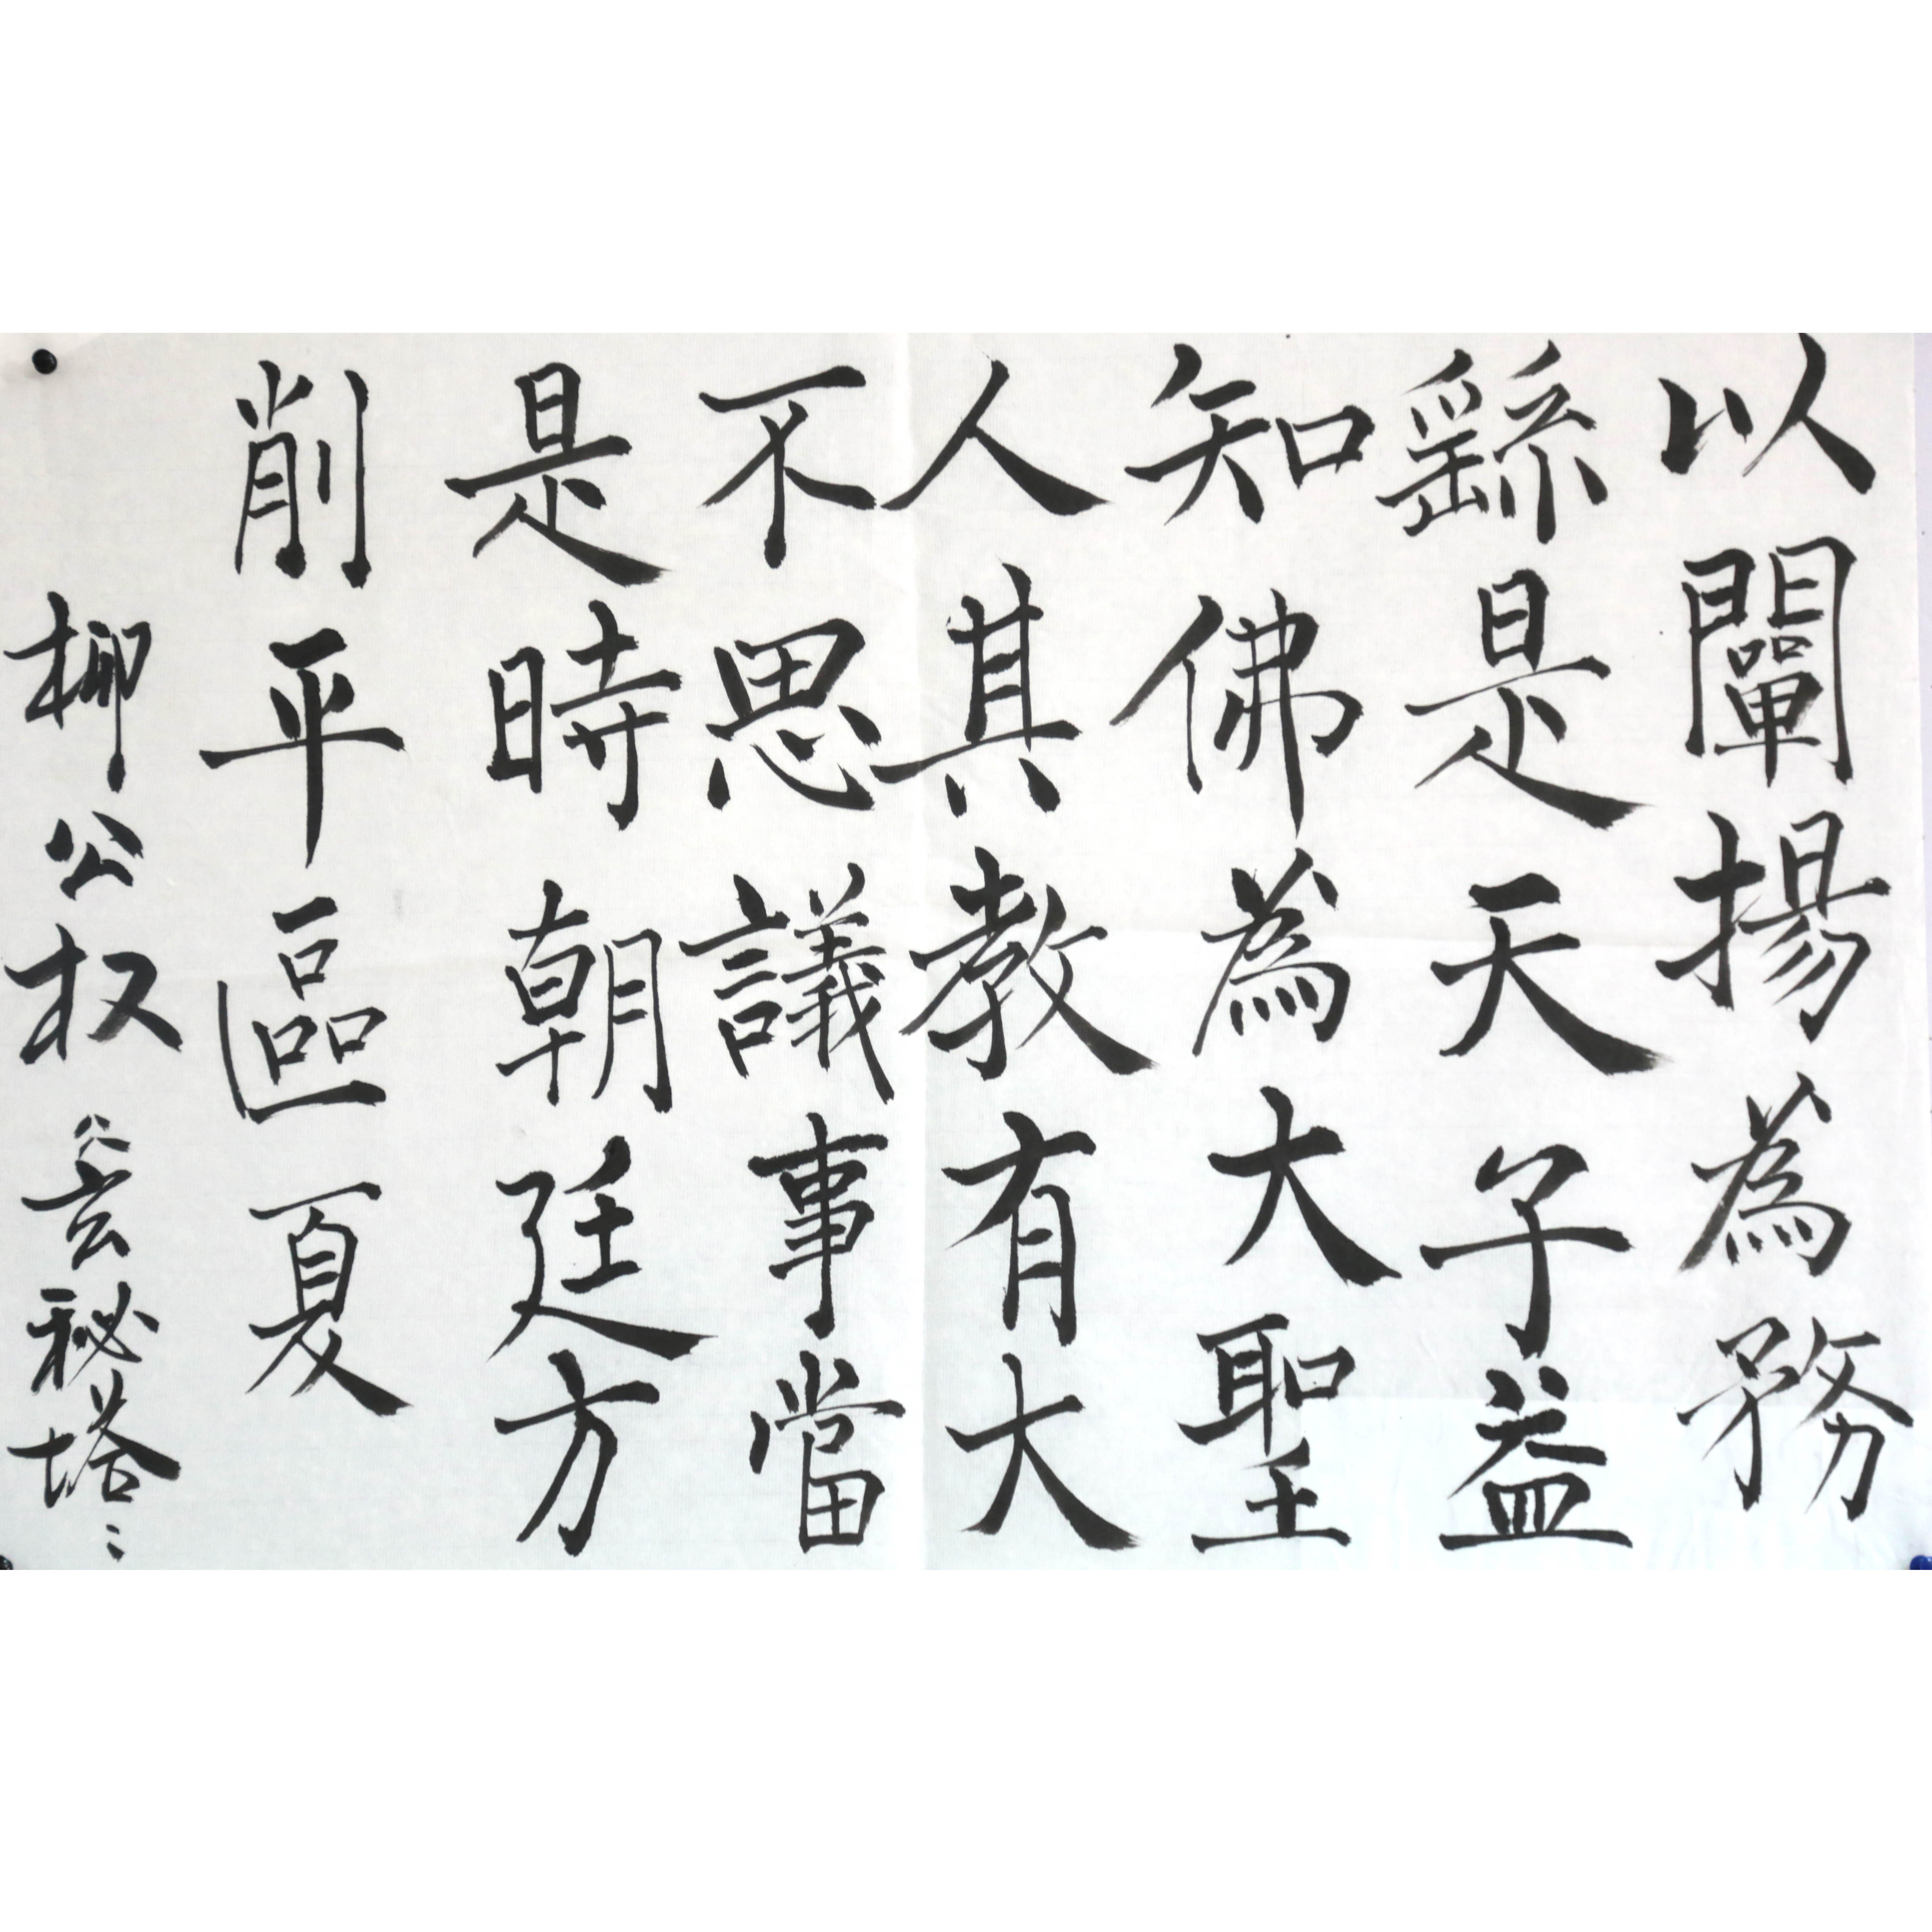 以闡揚為務
繇是天子益
知佛為大聖
人其教有大
不思議事當
是時朝廷方
削平區夏
柳公权 玄秘塔